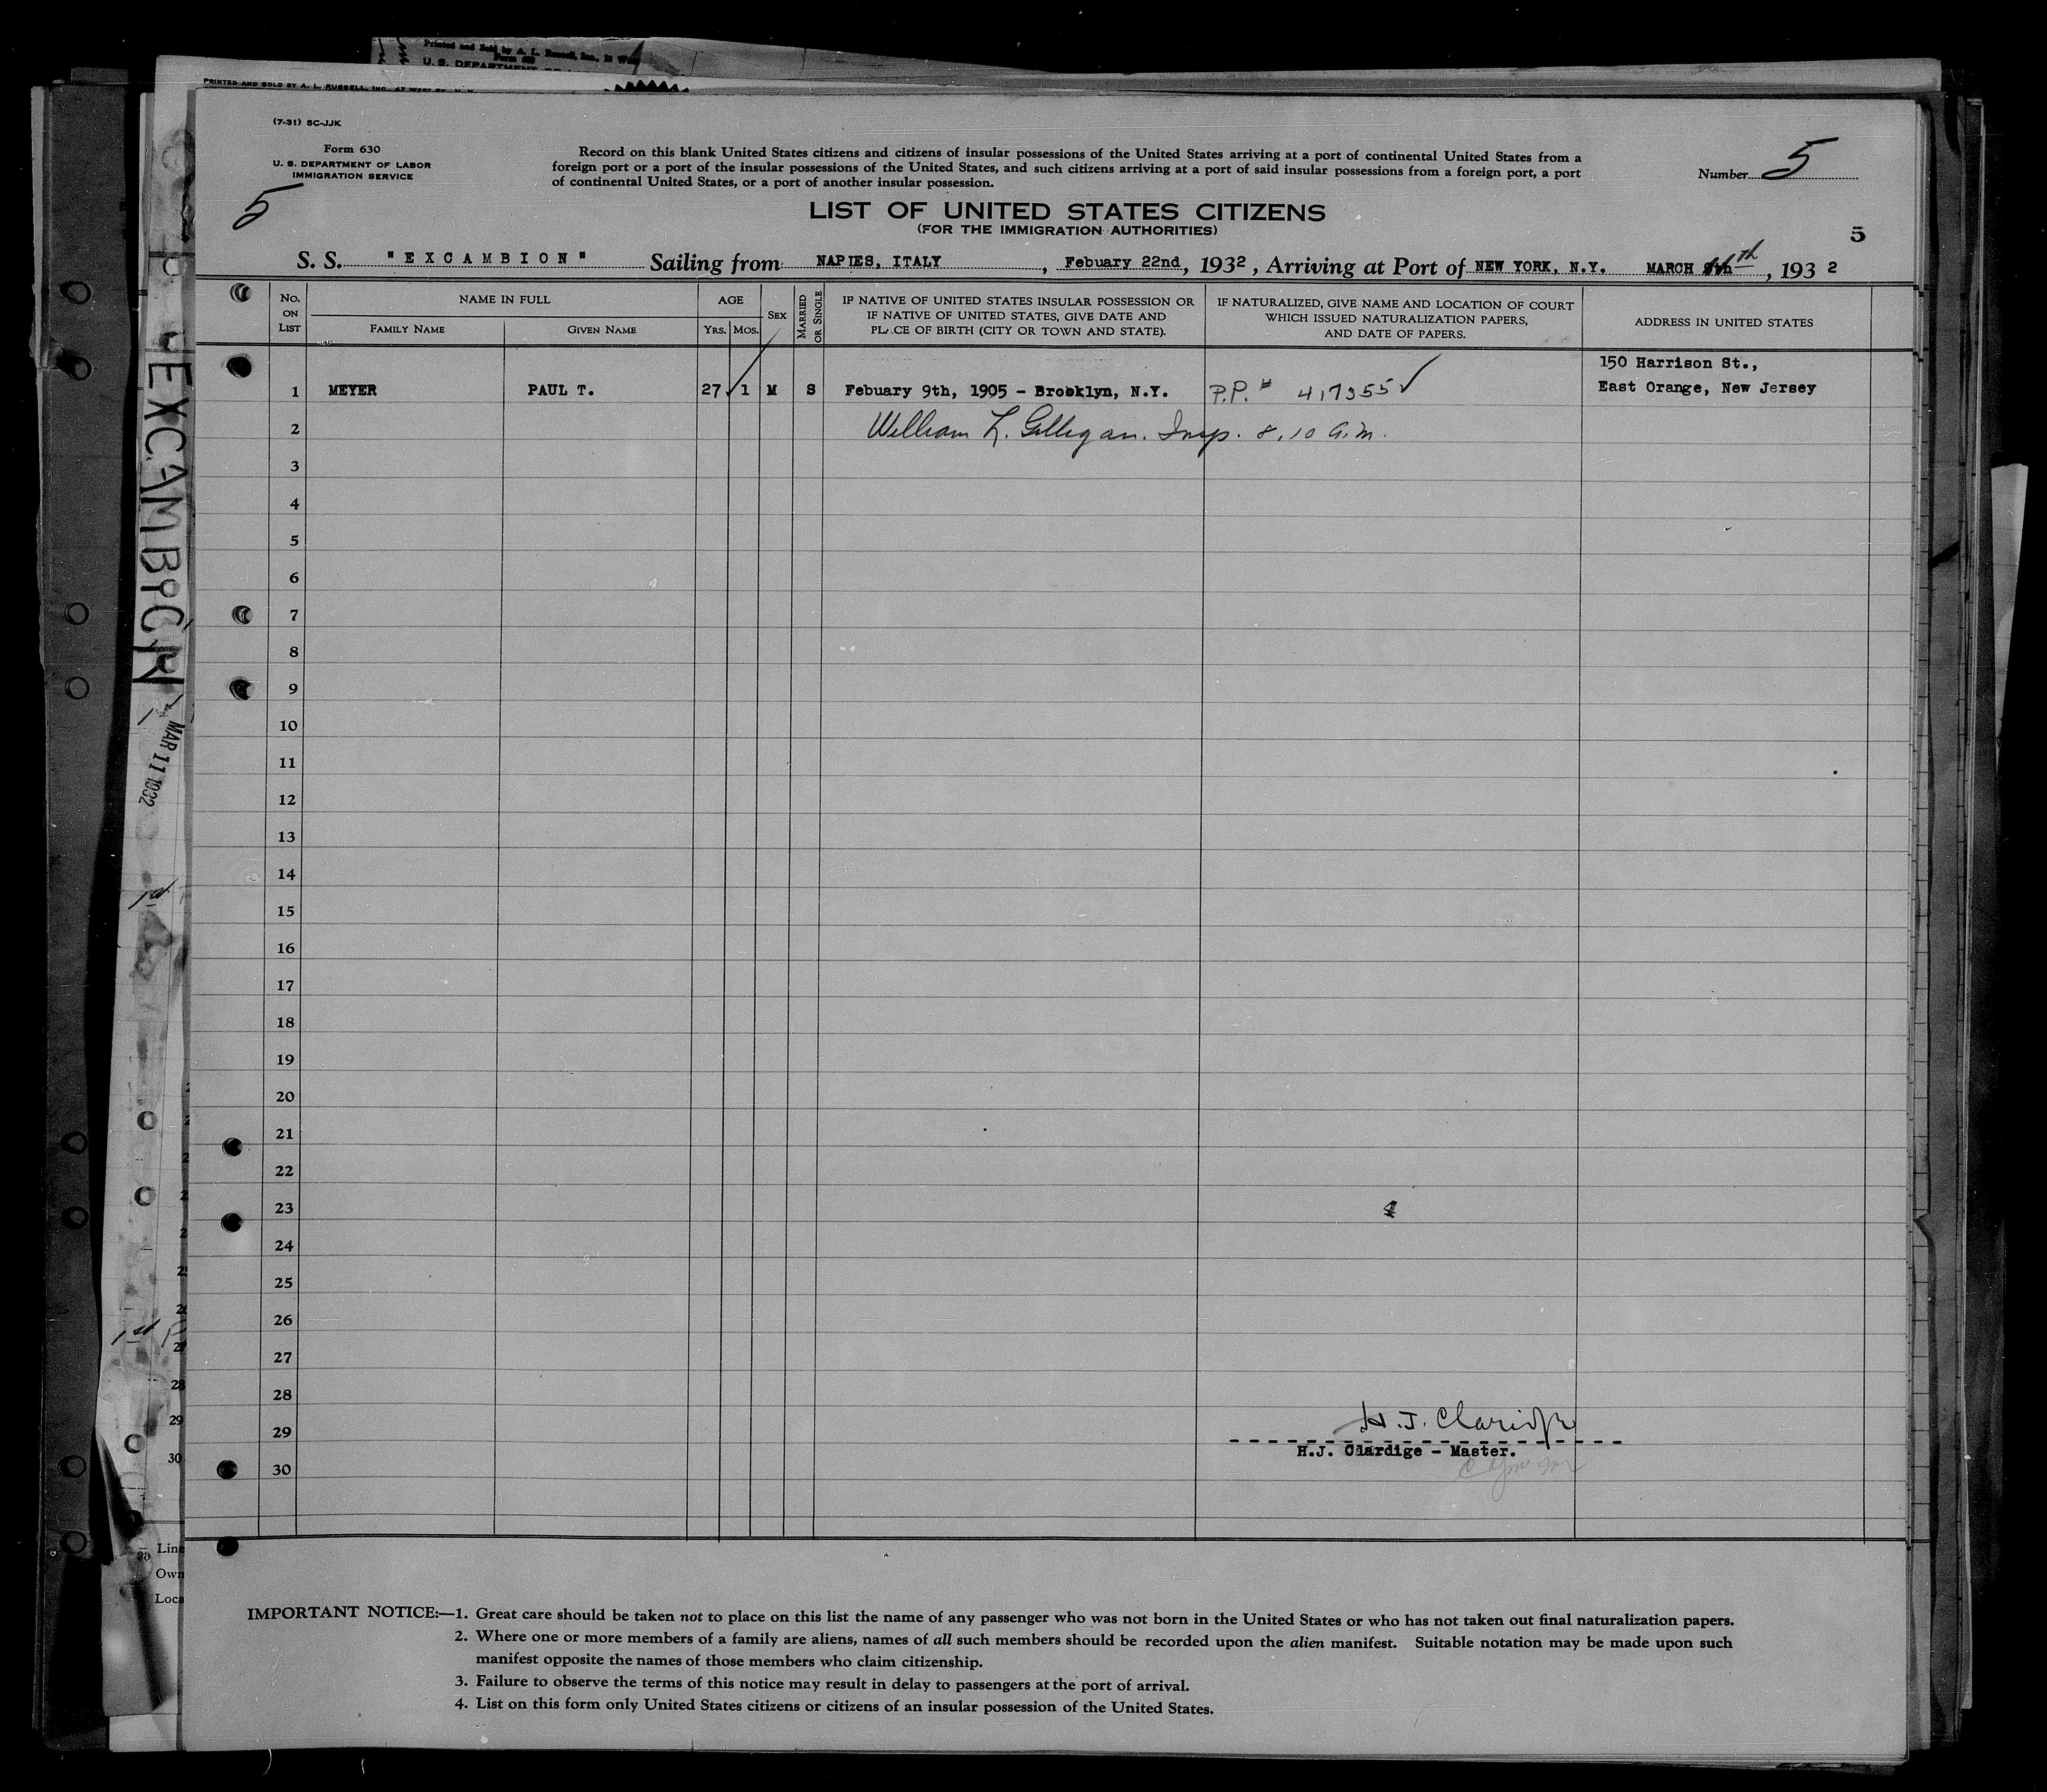 Printed and Sold by A. L. Russell, Inc.,
PRINTED AND SOLD BY A. L. RUSSELL, INC.
(7-31) 5C-JJK
Form 630
U. S. DEPARTMENT OF LABOR
IMMIGRATION SERVICE
5
Record on this blank United States citizens and citizens of insular possessions of the United States arriving at a port of continental United States from a
foreign port or a port of the insular possessions of the United States, and such citizens arriving at a port of said insular possessions from a foreign port, a port
of continental United States, or a port of another insular possession.
Number 5
LIST OF UNITED STATES CITIZENS
(FOR THE IMMIGRATION AUTHORITIES)
5
S. S. "EXCAMBION" Sailing from NAPIES, ITALY, Febuary 22nd, 1932, Arriving at Port of NEW YORK, N.Y. MARCH th, 1932
No. ON LIST
NAME IN FULL
FAMILY NAME
GIVEN NAME
AGE
YRS.
MOS.
SEX
MARRIED OR SINGLE
IF NATIVE OF UNITED STATES INSULAR POSSESSION OR
IF NATIVE OF UNITED STATES, GIVE DATE AND
PLACE OF BIRTH (CITY OR TOWN AND STATE).
IF NATURALIZED, GIVE NAME AND LOCATION OF COURT
WHICH ISSUED NATURALIZATION PAPERS,
AND DATE OF PAPERS.
ADDRESS IN UNITED STATES
150 Harrison St.,
1 MEYER PAUL T. 27 1 M S Febuary 9th, 1905 - Brooklyn, N.Y. P.P. # 417355 East Orange, New Jersey
2 William L. Gilligan. Insp. 8.10 a.m.
3
4
5
6
7
8
9
10
11
12
13
14
15
16
17
18
19
20
21
22
23
24
25
26
27
28
29
30
H.J. Claridge
H.J. Clardige - Master.
IMPORTANT NOTICE:—1. Great care should be taken not to place on this list the name of any passenger who was not born in the United States or who has not taken out final naturalization papers.
2. Where one or more members of a family are aliens, names of all such members should be recorded upon the alien manifest. Suitable notation may be made upon such
manifest opposite the names of those members who claim citizenship.
3. Failure to observe the terms of this notice may result in delay to passengers at the port of arrival.
4. List on this form only United States citizens or citizens of an insular possession of the United States.
EXCAMBION
MAR 11 1932